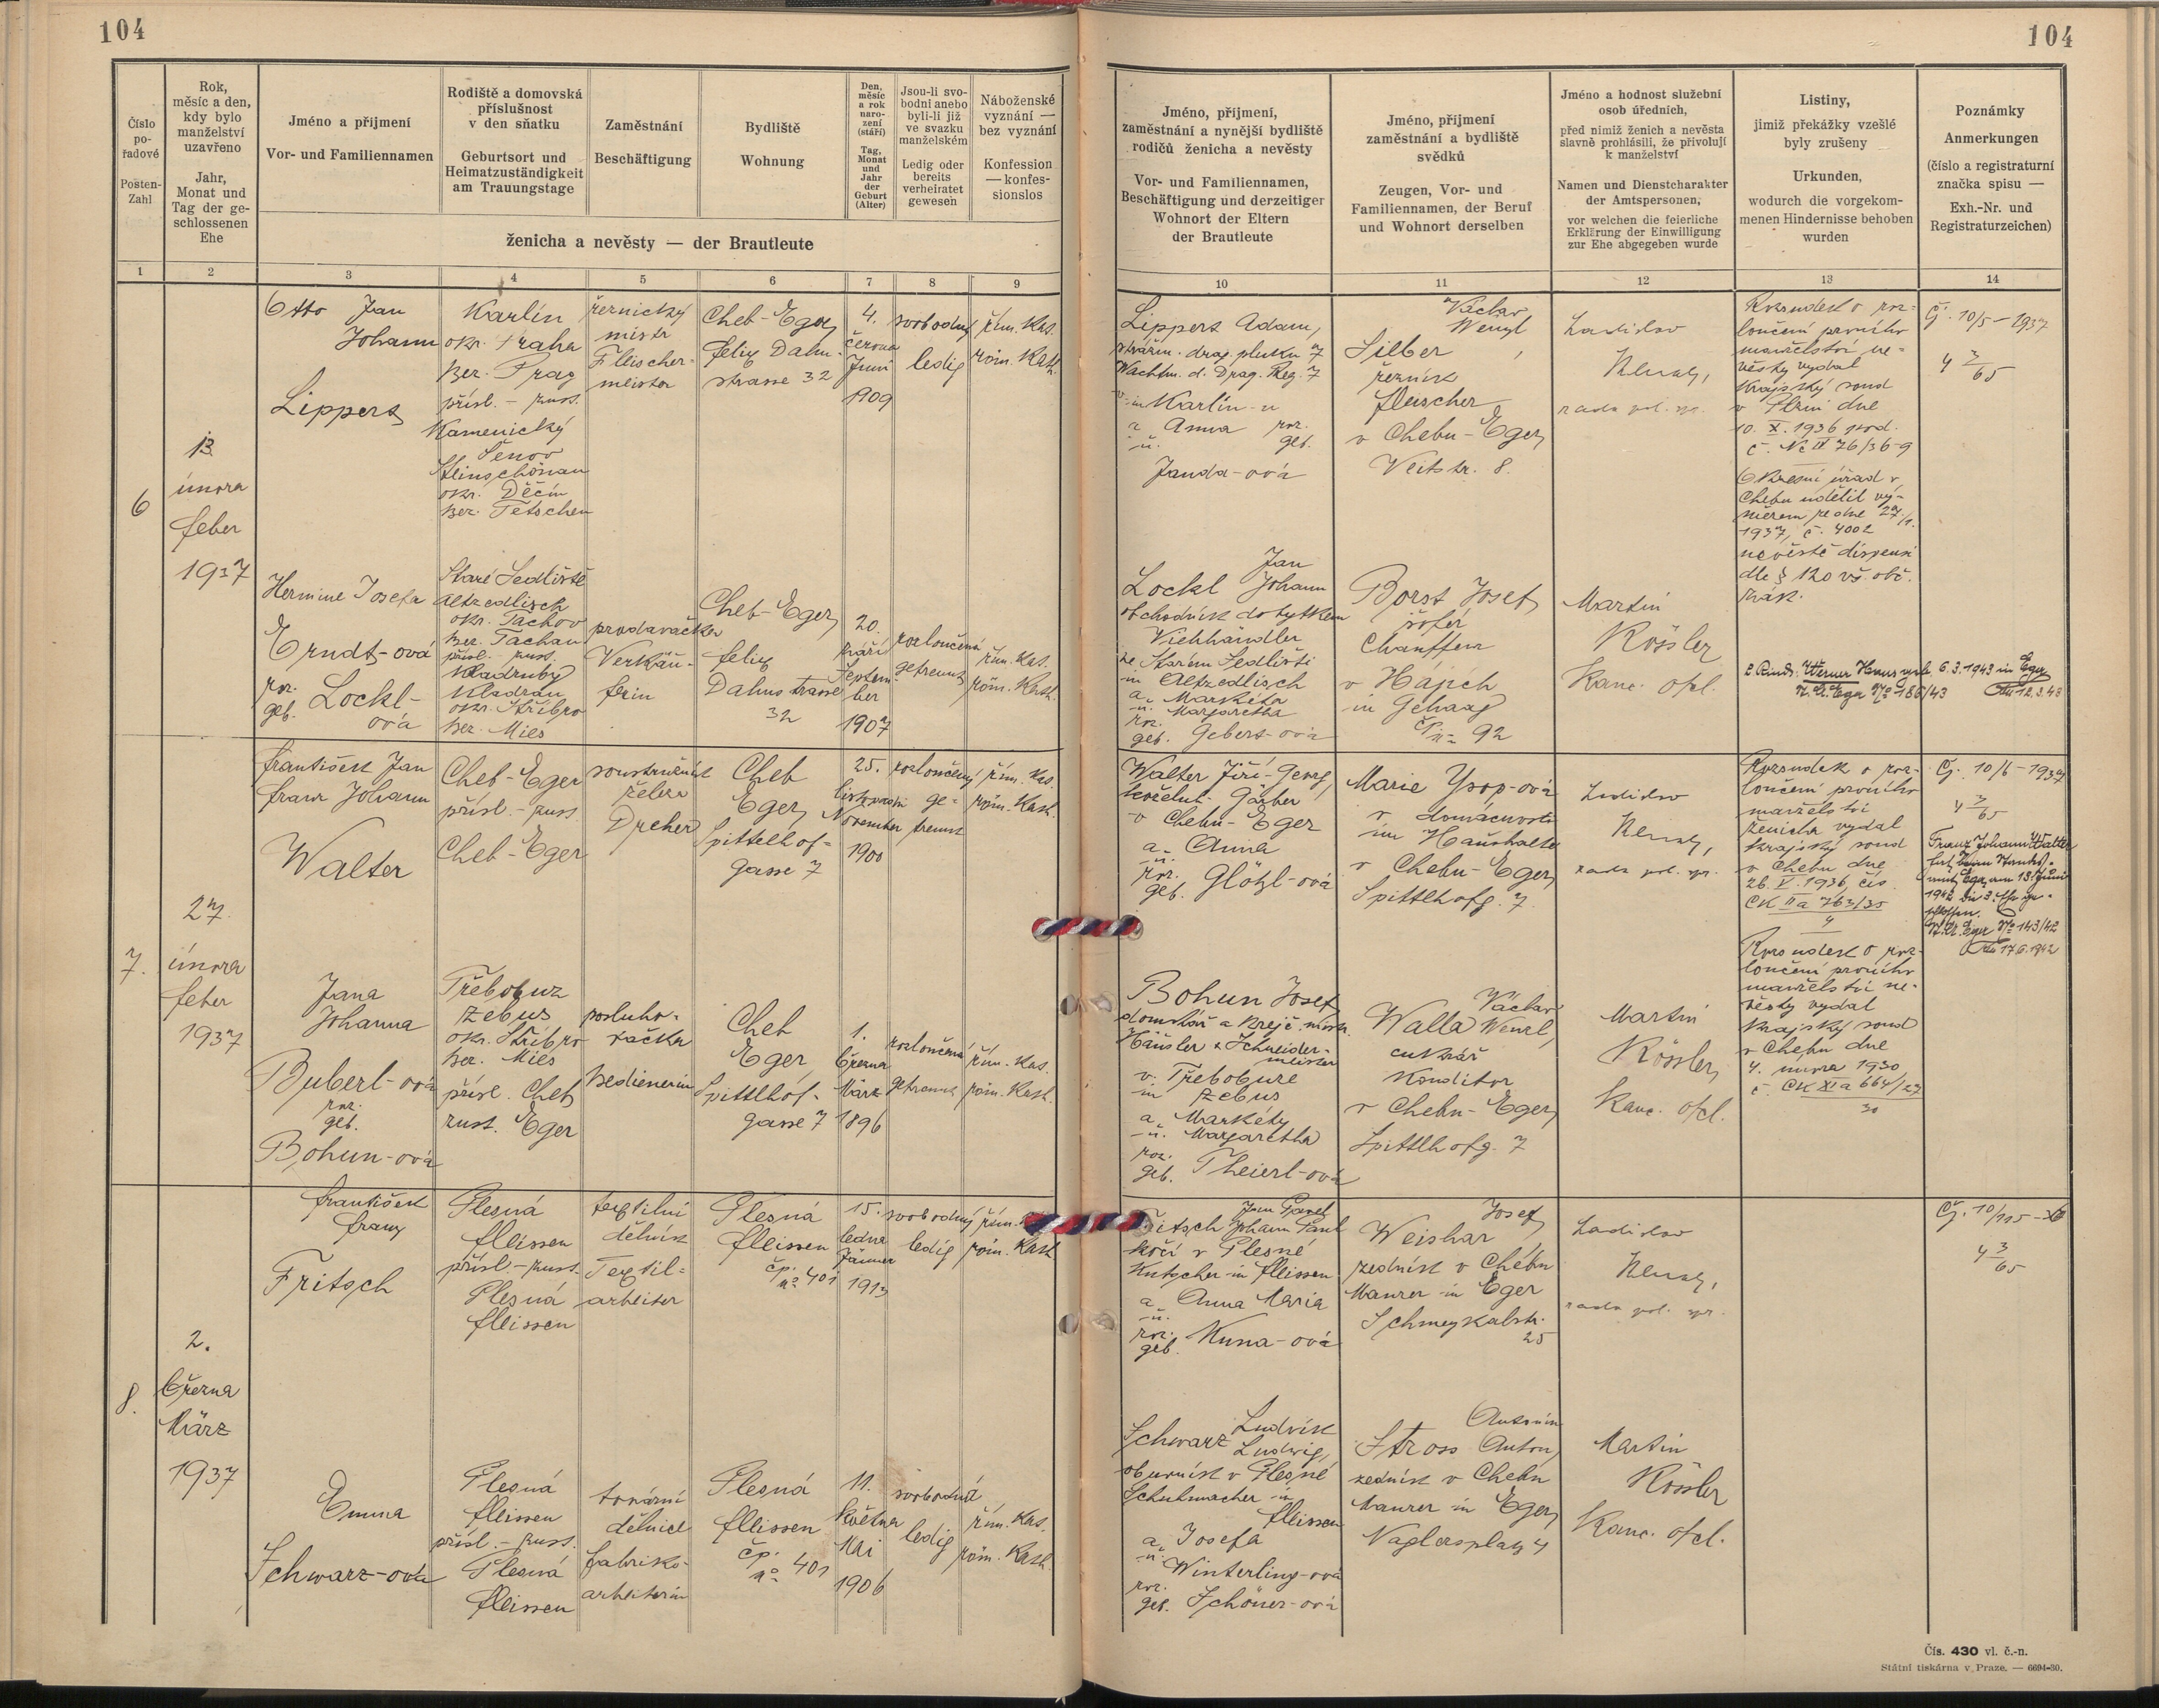 104
104
Číslo
po-
řadové
Posten-
Zahl
Rok,
měsíc a den,
kdy bylo
manželství
uzavřeno
Jahr,
Monat und
Tag der ge-
schlossenen
Ehe
Jméno a přijmení
Vor- und Familiennamen
Rodiště a domovská
příslušnost
v den sňatku
Geburtsort und
Heimatzuständigkeit
am Trauungstage
Zaměstnání
Beschäftigung
Bydliště
Wohnung
Den,
měsíc
a rok
naro-
zení
(stáří)
Tag,
Monat
und
Jahr
der
Geburt
(Alter)
Jsou-li svo-
bodni anebo
byli-li již
ve svazku
manželském
Ledig oder
bereits
verheiratet
gewesen
Náboženské
vyznání —
bez vyznání
Konfession
— konfes-
sionslos
ženicha a nevěsty — der Brautleute
Jméno, příjmení,
zaměstnání a nynější bydliště
rodičů ženicha a nevěsty
Vor- und Familiennamen,
Beschäftigung und derzeitiger
Wohnort der Eltern
der Brautleute
Jméno, příjmení
zaměstnání a bydliště
svědků
Zeugen, Vor- und
Familiennamen, der Beruf
und Wohnort derselben
Jméno a hodnost služební
osob úředních,
před nimiž ženich a nevěsta
slavně prohlásili, že přivolují
k manželství
Namen und Dienstcharakter
der Amtspersonen,
vor welchen die feierliche
Erklärung der Einwilligung
zur Ehe abgegeben wurde
Listiny,
jimiž překážky vzešlé
byly zrušeny
Urkunden,
wodurch die vorgekom-
menen Hindernisse behoben
wurden
Poznámky
Anmerkungen
(číslo a registraturní
značka spisu —
Exh.-Nr. und
Registraturzeichen)
1 2 3 4 5 6 7 8 9 10 11 12 13 14
6
13.
února
feber
1937
Otto Jan
Johann
Lippert
Karlín
okr. Praha
bez. Prag
přísl. - zust.
Kamenický
Šenov
Steinschönau
okr. Děčín
bez. Tetschen
řeznický
mistr
Fleischer-
meister
Cheb-Eger,
Felix Dahn-
strasse 32
4.
června
Juni
1909
svobodný
ledig
řím. kat.
röm. kath.
Lippert Adam,
strážm. drag. pluku 7
Wachtm. d. Drag. Reg. 7
v-in Karlín-u
a Anna roz.
u. geb.
Janda-ová
Václav
Wenzl
Silber,
řezník
Fleischer
v Chebu-Eger,
Veitstr. 8.
Ladislav
rada pol. spr.
Rozsudek o roz-
loučení prvního
manželství ne-
věsty vydal
Krajský soud
v Plzni dne
10. X. 1936 pod.
č. Nc II 76/36-9
Okresní úřad v
Chebu udělil vý-
měrem ze dne 27./1.
1937, č. 4002
nevěstě dispensi
dle § 120 vš. obč.
zák.
Čj. 10/5-1937
4 3/65
Hermine Josefa
Erndt-ová
roz.
geb. Lockl-
ová
Staré Sedliště
Altzedlisch
okr. Tachov
bez. Tachau
přísl. - zust.
Kladruby
Kladrau
okr. Stříbro
bez. Mies
prodavačka
Verkäu-
ferin
Cheb-Eger,
Felix
Dahnstrasse
32
20.
září
Septem-
ber
1907
rozloučená
getrennt
řím. kat.
röm. kath.
Jan
Lockl Johann
obchodník dobytkem
Viehhändler
ve Starém Sedlišti
in Altzedlisch
a Markéta
u. Margaretha
roz.
geb. Gebert-ová
Borst Josef,
šofér
Chauffeur
v Hájích
in Gehaag
čp. 92
Martin
Rössler
Kanc. ofcl.
6.3.1943 in Eger
No 186/43
7.
27.
února
feber
1937
František Jan
Franz Johann
Walter
Cheb-Eger
přísl. - zust.
Cheb-Eger
soustružník
železa
Dreher
Cheb
Eger,
Spittelhof-
gasse 7
25.
listopadu
November
1900
rozloučený
ge-
trennt
řím. kat.
röm. kath.
Walter Jiří-Georg,
koželuh Gärber
v Chebu-Eger
a Anna
u.
roz.
geb. Glötzl-ová
Marie Ysop-ová
v domácnosti
im Haushalte
v Chebu-Eger,
Spittlhofg. 7.
Ladislav
rada pol. spr.
Rozsudek o roz-
loučení prvního
manželství
ženicha vydal
krajský soud
v Chebu dne
26. V. 1936, čís
CK II a 763/35
4
Čj. 10/6-1937
4 3/65
Franz Johann Walter
hat beim Standes-
amt Eger am 13 Juni
1942 die 3. Ehe ge-
schlossen.
St.A. Eger No 143/42
17.6.1942
Jana
Johanna
Buberl-ová
roz.
geb.
Bohun-ová
Třebobuz
Zebus
okr. Stříbro
bez. Mies
přísl. Cheb
zust. Eger
posluho-
vačka
Bedienerin
Cheb
Eger,
Spittlhof-
gasse 7
1.
března
März
1896
rozloučená
getrennt
řím. kat.
röm. kath.
Bohun Josef
domkář a krejč. mistr.
Häusler u. Schneider-
meister
v Třebobuze
in Zebus
a Markéty
u. Margaretha
roz.
geb. Theierl-ová
Václav
Walla Wenzl,
cukrář
Konditor
v Chebu-Eger,
Spittlhofg. 7
Martin
Rössler,
Kanc. ofcl.
Rozsudek o roz-
loučení prvního
manželství ne-
věsty vydal
Krajský soud
v Chebu dne
4. února 1930
č. CK XI a 664/27
30
8.
2.
března
März
1937
František
Franz
Fritsch
Plesná
Fleissen
přísl. - zust.
Plesná
Fleissen
textilní
dělník
Textil-
arbeiter
Plesná
Fleissen
čp.
No 401
15.
ledna
Jänner
1913
svobodný
ledig
řím. k
röm. kath.
Jan Pavel
Fritsch Johann Paul
kočí v Plesné
Kutscher in Fleissen
a Anna Maria
u.
roz.
geb. Kuna-ová
Josef,
Weishar
zedník v Chebu
Maurer in Eger
Schmeykalstr.
25
Ladislav
rada pol. spr.
4 3/65
Emma
Schwarz-ová
Plesná
Fleissen
přísl. - zust.
Plesná
Fleissen
tovární
dělnice
Fabriks-
arbeiterin
Plesná
Fleissen
čp.
No 401
11.
května
Mai
1906
svobodná
ledig
řím. kat.
röm. kath.
Ludvík
Schwarz Ludwig,
obuvník v Plesné
Schuhmacher in
Fleissen
a Josefa
u.
Winterling-ová
roz.
geb. Schöner-ová
Antonín
Stross Anton,
zedník v Chebu
Maurer in Eger,
Naglersplatz 4
Martin
Rössler
Kanc. ofcl.
Čís. 430 vl. č.-n.
Státní tiskárna v Praze. — 6694-30.